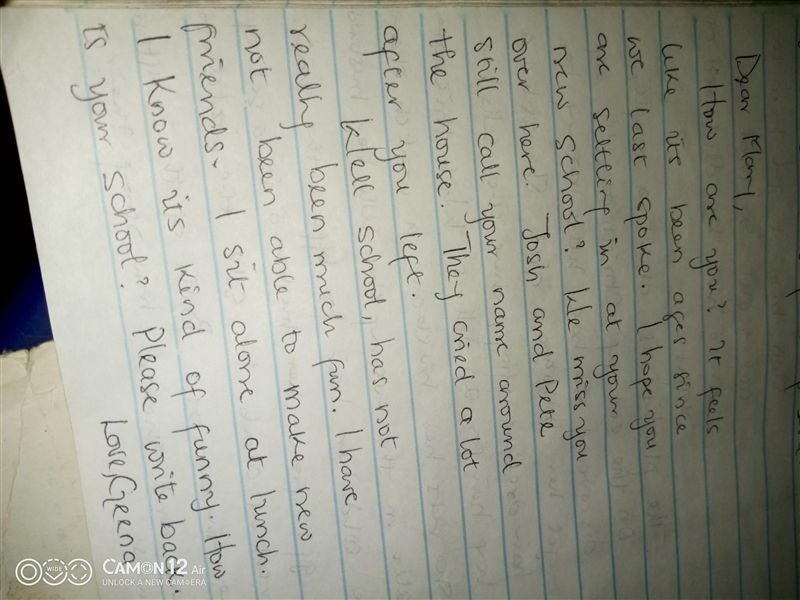 Dear Mary,
How are you? It feels
like its been ages since
we last spoke. I hope you
are settling in at your
new school? We miss you
over here. Josh and Pete
still call your name around
the house. They cried a lot
after you left.
Well school, has not
really been much fun. I have
not been able to make new
friends. I sit alone at lunch.
I know its kind of funny. How
is your school? Please write back.
Love, Geena
CAMON 12 Air
UNLOCK A NEW CAMERA
WIDE